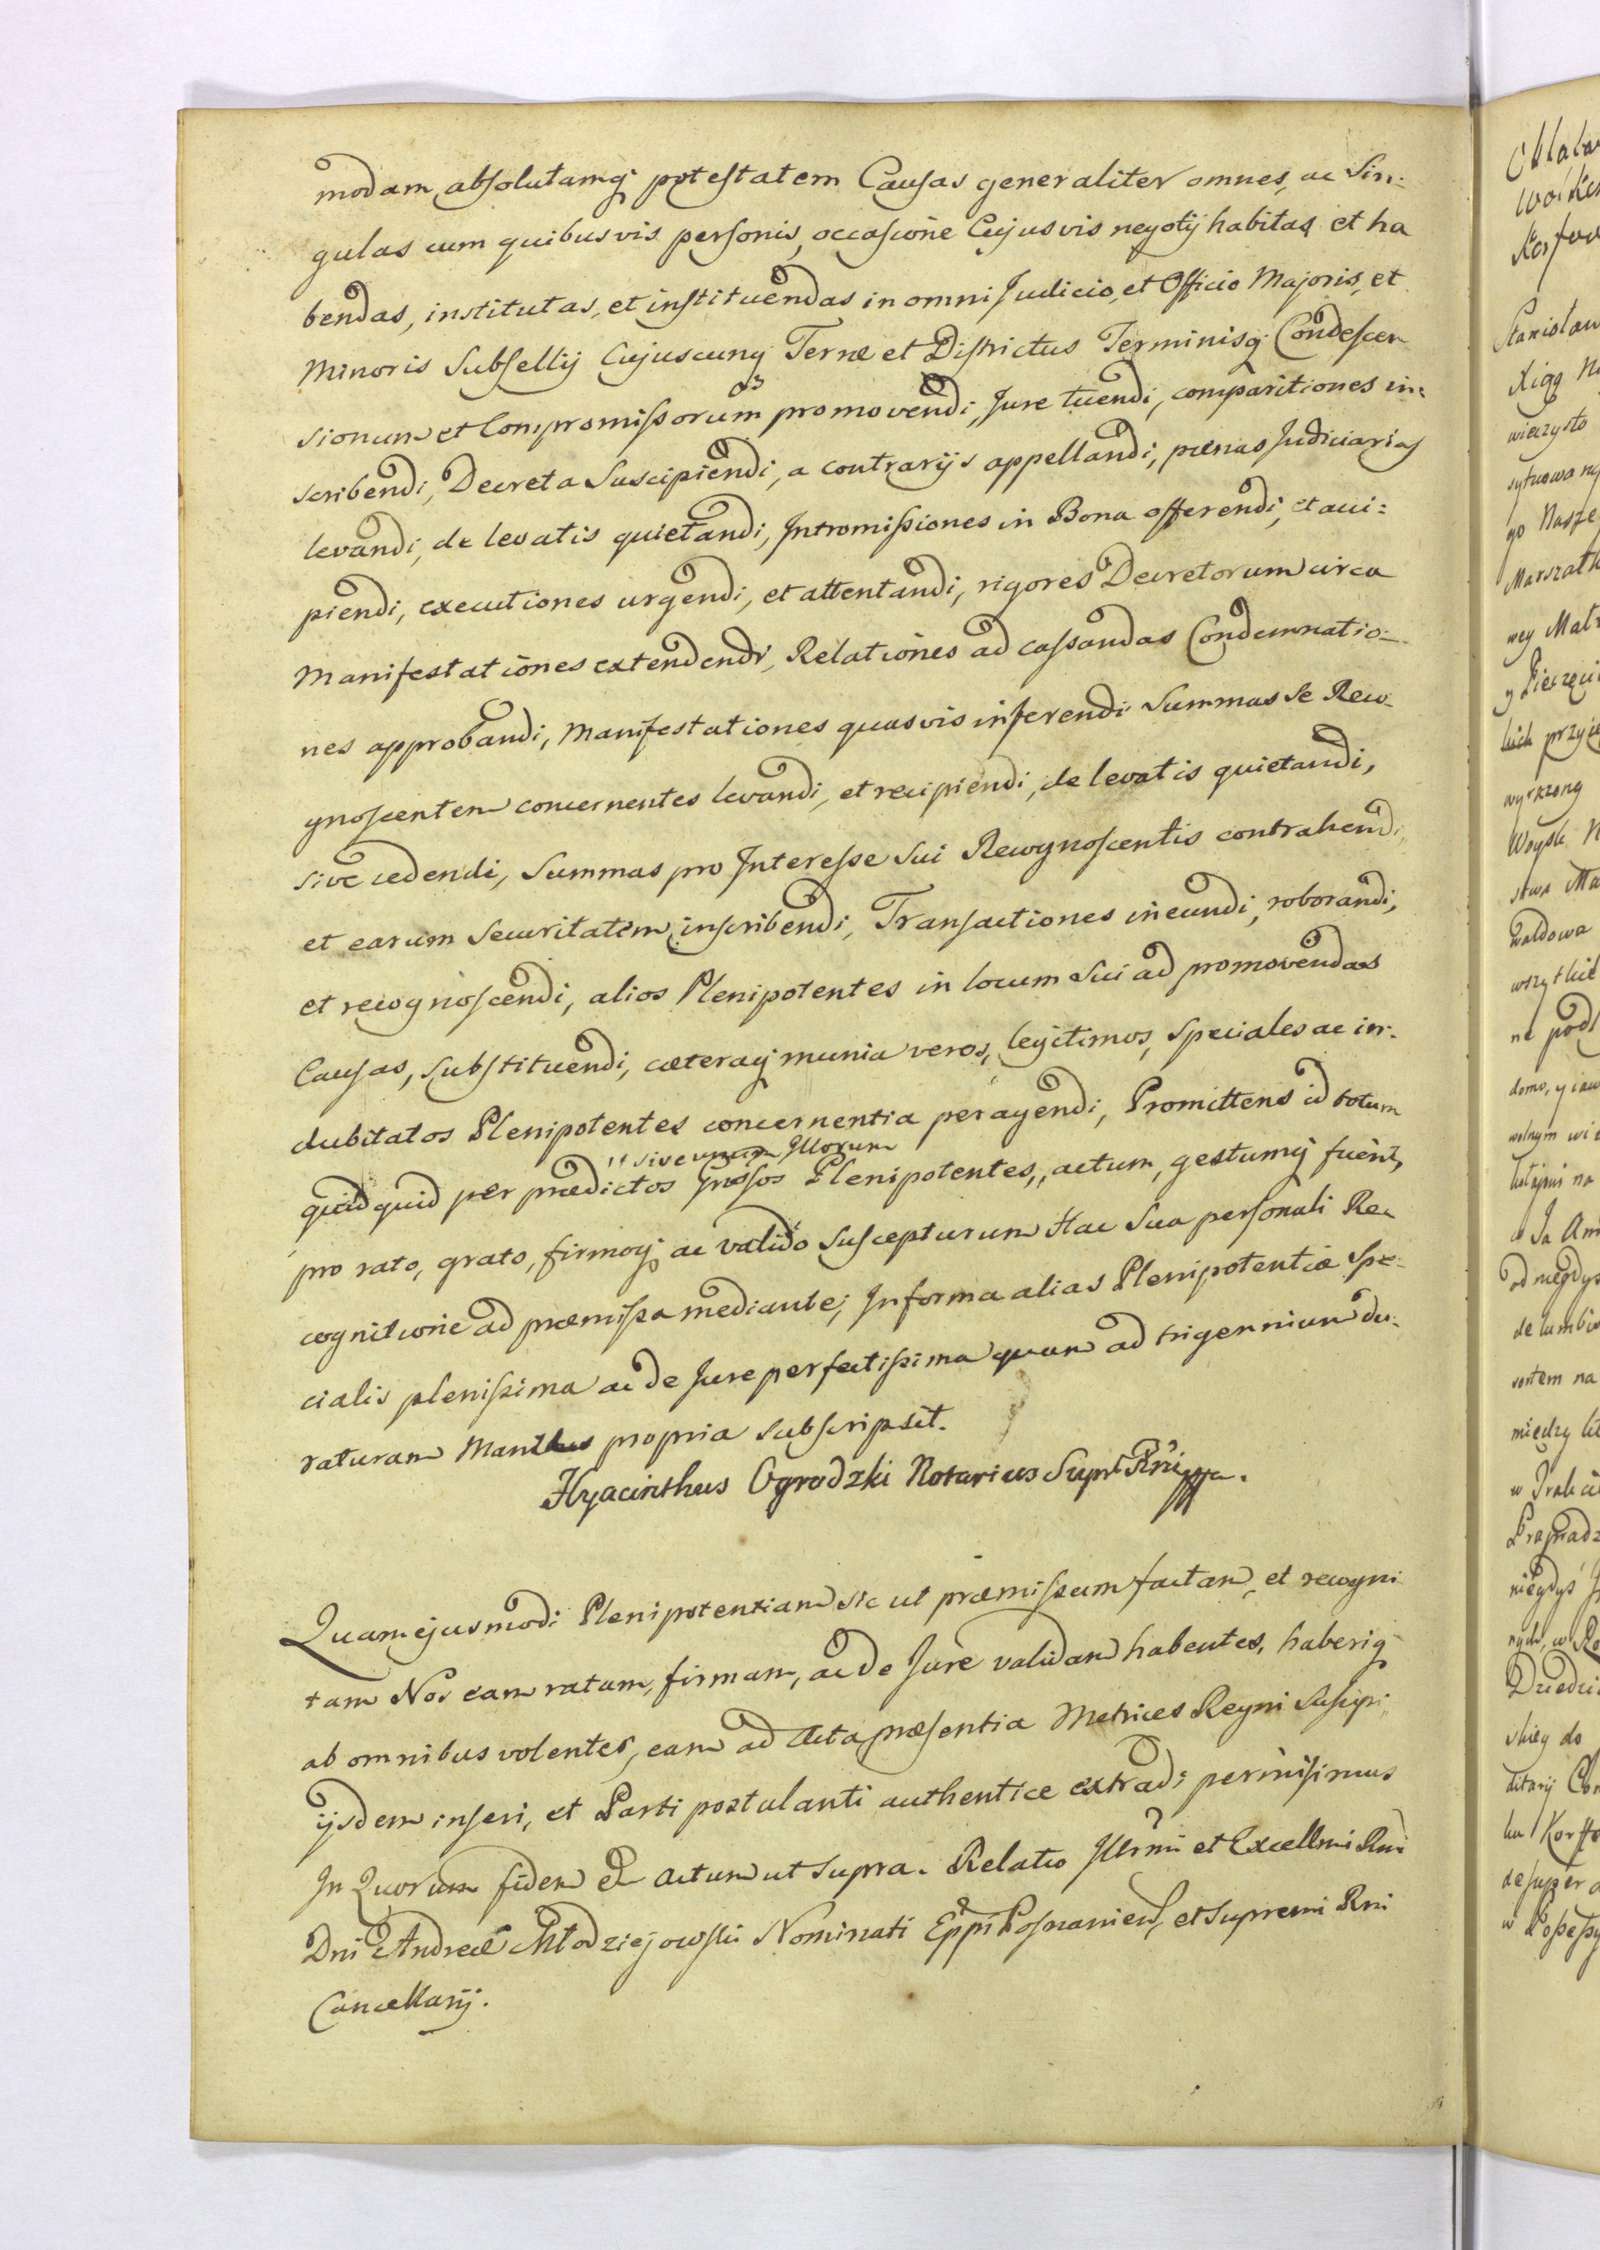 modam, absolutamq; potestatem Causas generaliter omnes, ac Sin-
gulas cum quibusvis personis, occasione Cujusvis negotij habitas et ha
bendas, institutas, et instituendas in omni Judicio, et Officio Majoris, et
Minoris Subsellij Cujuscunq; Terræ et Districtus Terminisq; Condescen
sionum et Compromissorum promovendi, Jure tuendi, comparitiones in-
scribendi, Decreta Suscipiendi, a contrarijs appellandi, pœnas Judiciarias
levandi, de levatis quietandi, Intromissiones in Bona offerendi, et acci-
piendi, executiones urgendi, et attentandi, rigores Decretorum circa
Manifestationes extendendi, Relationes ad cassandas Condemnatio-
nes approbandi, Manifestationes quasvis inferendi Summas Se Reco-
gnoscentem concernentes levandi, et recipiendi, de levatis quietandi,
sive cedendi, Summas pro Interesse Sui Recognoscentis contrahendi,
et earum Securitatem inscribendi, Transactiones ineundi, roborandi,
et recognoscendi, alios Plenipotentes in locum Sui ad promovendas
Causas, substituendi, cæteraq; munia veros, legitimos, speciales ac in-
dubitatos Plenipotentes concernentia peragendi, Promittens id totum
" sive unum Illorum
quidquid per prædictos Gnosos Plenipotentes,, actum, gestumq; fuerit,
pro rato, grato, firmoq; ac valido Suscepturum Hac Sua personali Re-
cognitione ad præmissa mediante; In forma alias Plenipotentiæ Spe-
cialis plenissima ac de Jure perfectissima quam ad trigennium du-
raturam Manu propria subscripsit.
Hyacinthus Ogrodzki Notarius Supr. Rni mppa.
Quam ejusmodi Plenipotentiam sic ut præmissum factam, et recogni
tam Nos eam ratam, firmam, ac de Jure validam habentes, haberiq;
ab omnibus volentes, eam ad Acta præsentia Metrices Regni Suscipi,
ijsdem inseri, et Parti postulanti authentice extradi permisimus
In Quorum fidem &c Actum ut supra. Relatio Illrmi et Excellmi Rndi
Dni Andreæ Młodziejowski Nominati Eppi Posnaniens, et Supremi Rni
Cancellarij.